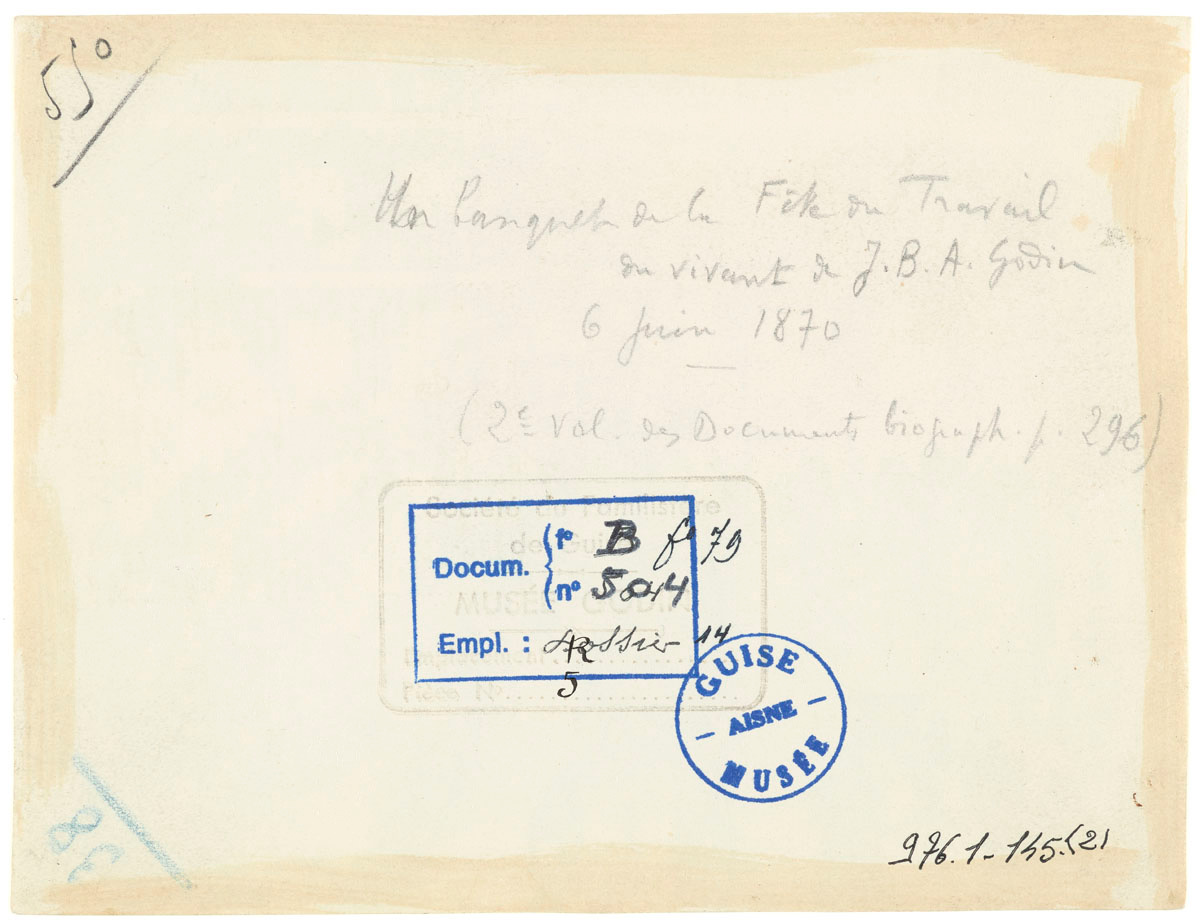 55°
Un banquet de la Fête du Travail
du vivant de J. B. A. Godin
6 Juin 1870
(2e Vol. des Documents biograph. p. 296)
Société du Familistère
de Guise
MUSÉE GODIN
Emplacement
Pièce N°
Docum. { f° B f° 79
n° 5044
Empl. : dossier 14
R
5
GUISE
– AISNE –
MUSÉE
38
976.1-145.(2)